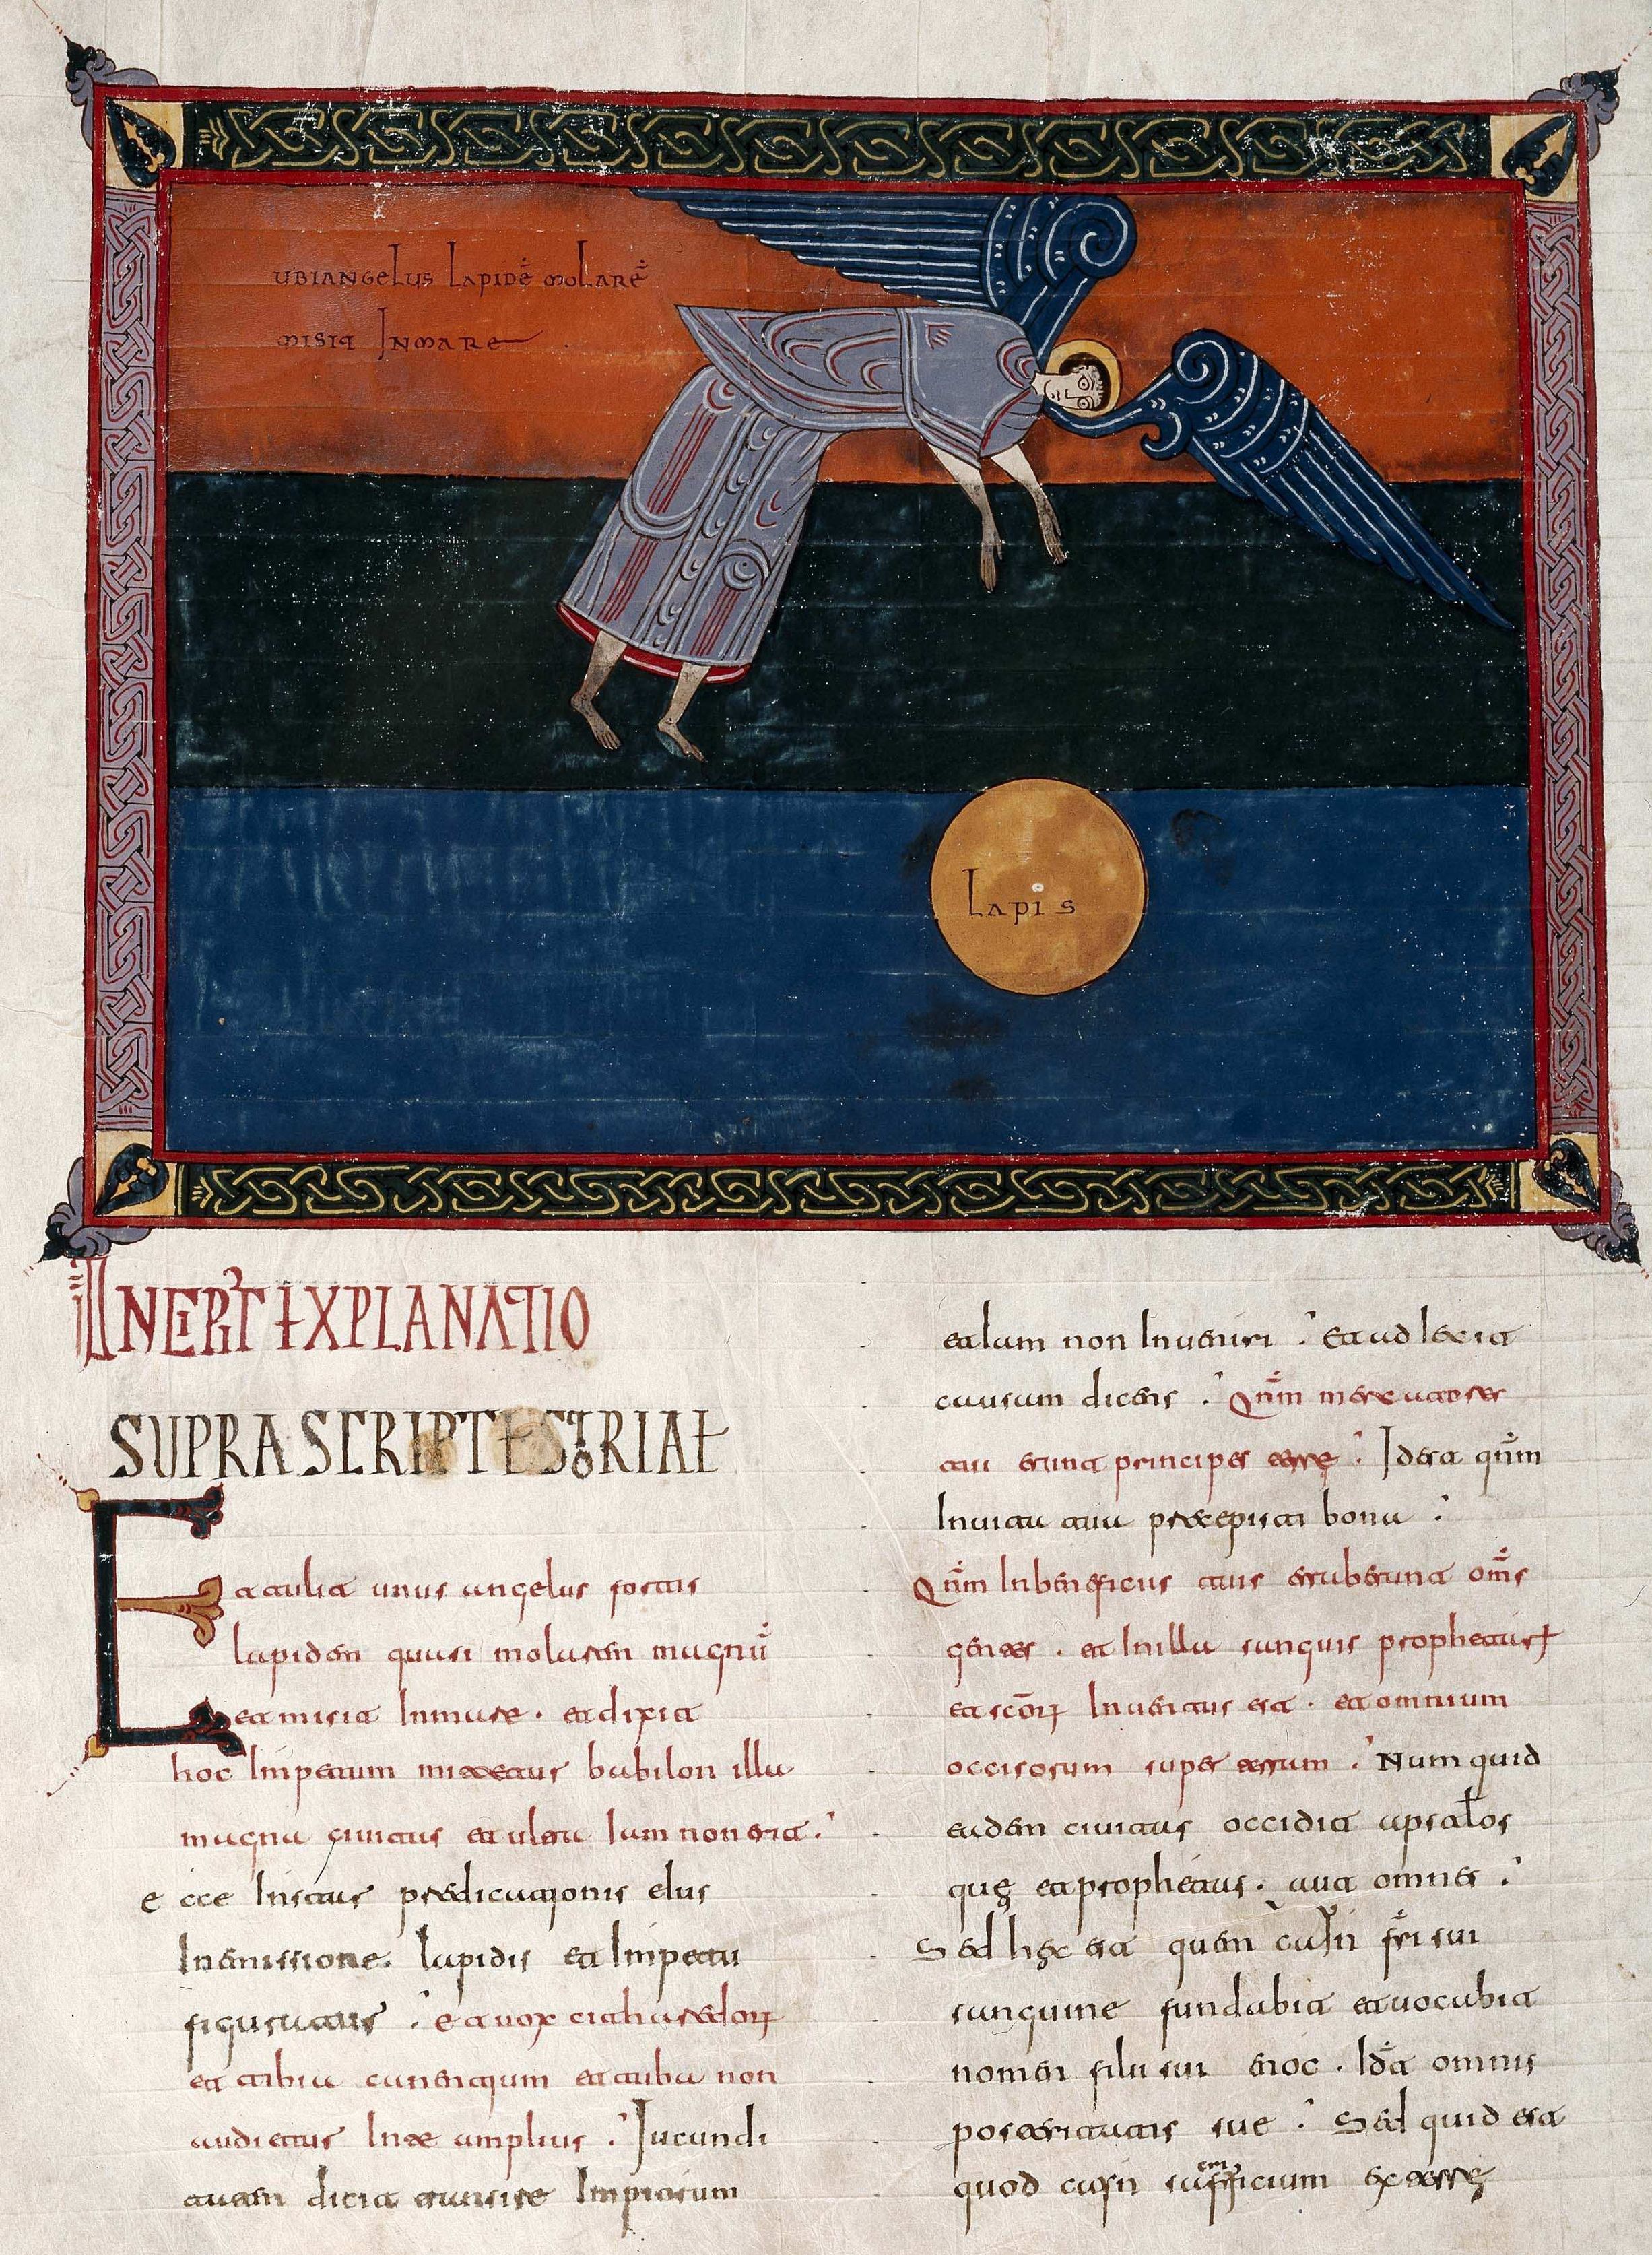 UBI ANGELUS LAPIDĒ MOLARĒ
MISIT IN MARE
Lapis
INCIPIT EXPLANATIO
SUPRA SCRIPTE STORIAE
Et tulit unus angelus fortis
lapidem quasi molarem magnū
et misit In mare. et dixit
hoc Impetum mittetur babilon illa
magna civitas et ultra Iam non erit.
ecce Instar predicationis eius
In emissione lapidis et Impetu
figuratur. et vox citharedorum
et tibia canentium et tuba non
audietur In te amplius. Iucundi
tatem dicit transire Impiorum
et Iam non Inveniri. et ad Iecit
causam dicens. Qnm mercatores
tui erunt principes terre. Idest qnm
In vita tua precepisti bona.
Qnm In beneficiis tuis erraberunt oms
gentes. et In illa sanguis prophetarum
et scōrum Inventus est. et omnium
occisorum super terram. Numquid
eadem civitas occidit apstolos
que et prophetas. aut omnes.
Sed hec est quem cain fri sui
sanguine fundabit et vocabit
nomen filii sui enoc. Idēt omnis
posteritatis sue. Sed quid est
quod cain sacrificium ex terre